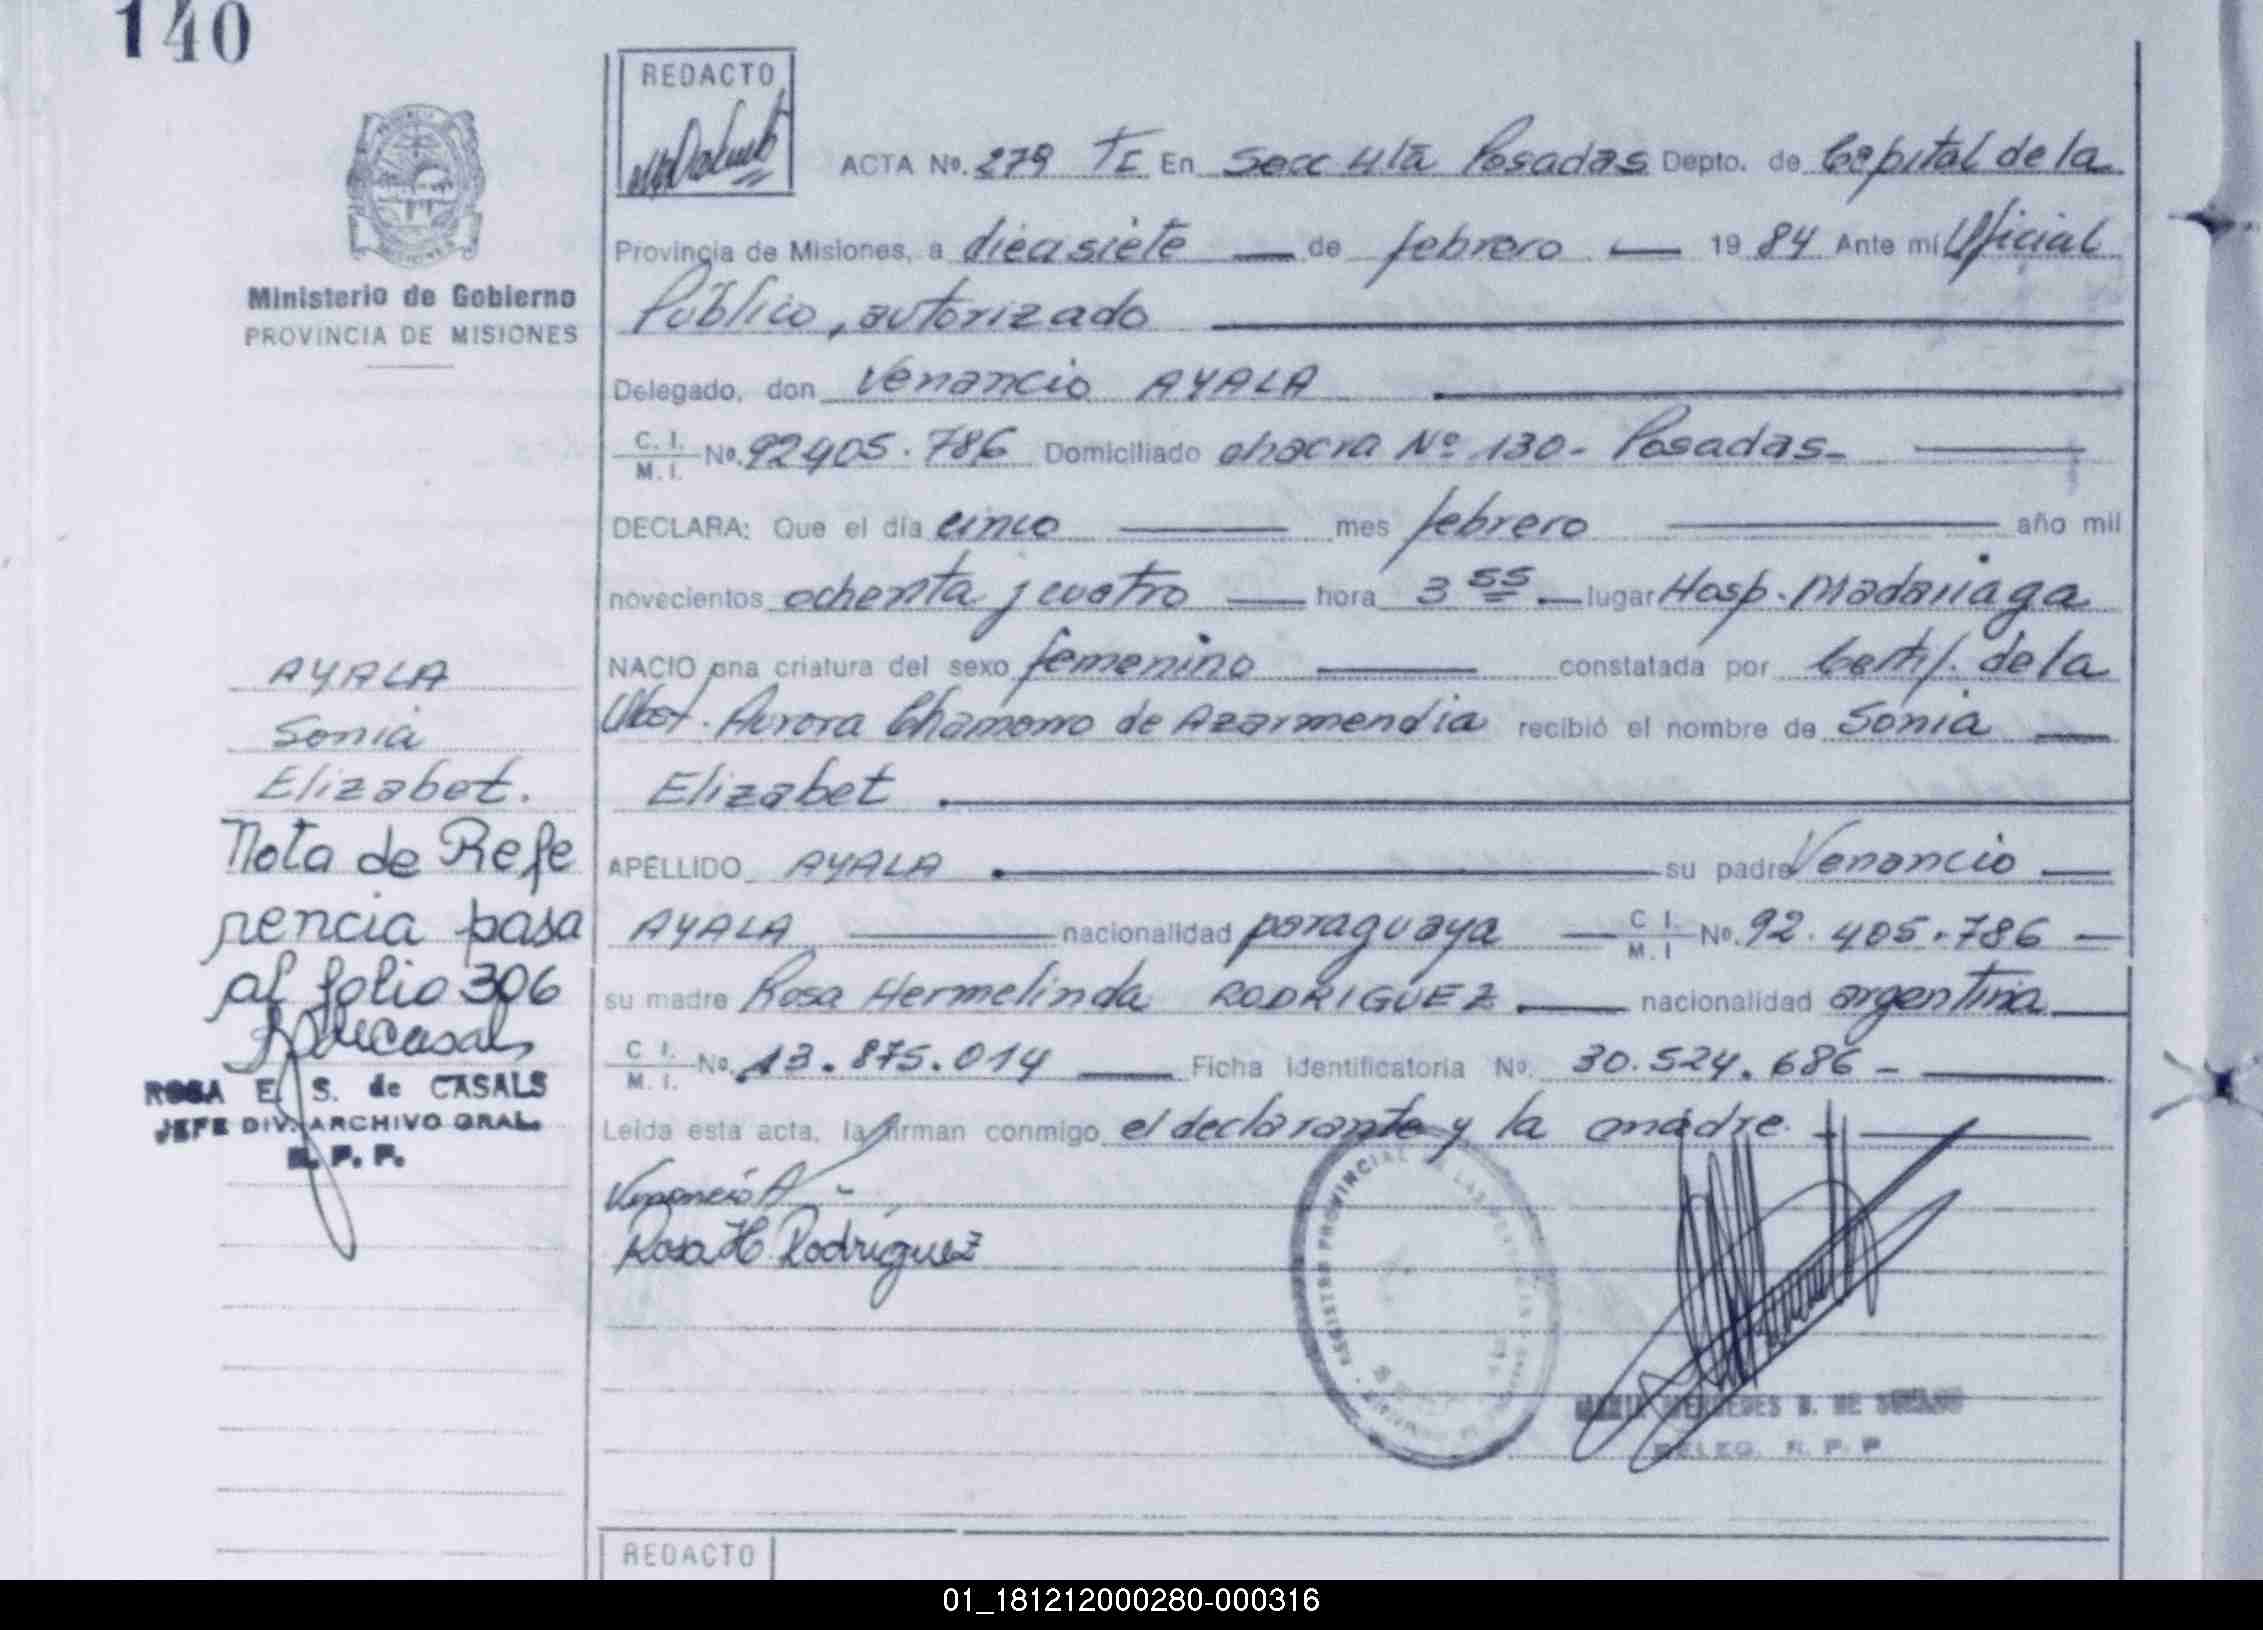 140
REDACTO
ACTA Nº. 279 TI En Secc 4ta Posadas Depto. de Capital de la
Provincia de Misiones, a diecisiete de febrero 1984 Ante mí Oficial
Público, autorizado
Delegado, don Venancio AYALA
C. I. M. I. Nº. 92405.786 Domiciliado chacra Nº 130- Posadas-
DECLARA: Que el día cinco mes febrero año mil
novecientos ochenta y cuatro hora 3 55 lugar Hosp. Madariaga
NACIO una criatura del sexo femenino constatada por Certif. de la
Obst. Aurora Chamorro de Azarmendia recibió el nombre de Sonia
Elizabet
APELLIDO AYALA su padre Venancio
AYALA nacionalidad paraguaya C I. M. I Nº. 92.405.786
su madre Rosa Hermelinda RODRIGUEZ nacionalidad argentina
C I. M. I. Nº. 13.875.014 Ficha identificatoria No. 30.524.686 -
Leida esta acta, la firman conmigo el declarante y la madre.
Venancio A
Rosa H. Rodríguez
REGISTRO PROVINCIAL DE LAS PERSONAS
MARIA MERCEDES B. DE
DELEG. R. P. P
REDACTO
Ministerio de Gobierno
PROVINCIA DE MISIONES
AYALA
Sonia
Elizabet.
Nota de Refe
rencia pasa
al folio 306
ROSA E. S. de CASALS
JEFE DIV. ARCHIVO GRAL.
R. P. P.
01_181212000280-000316